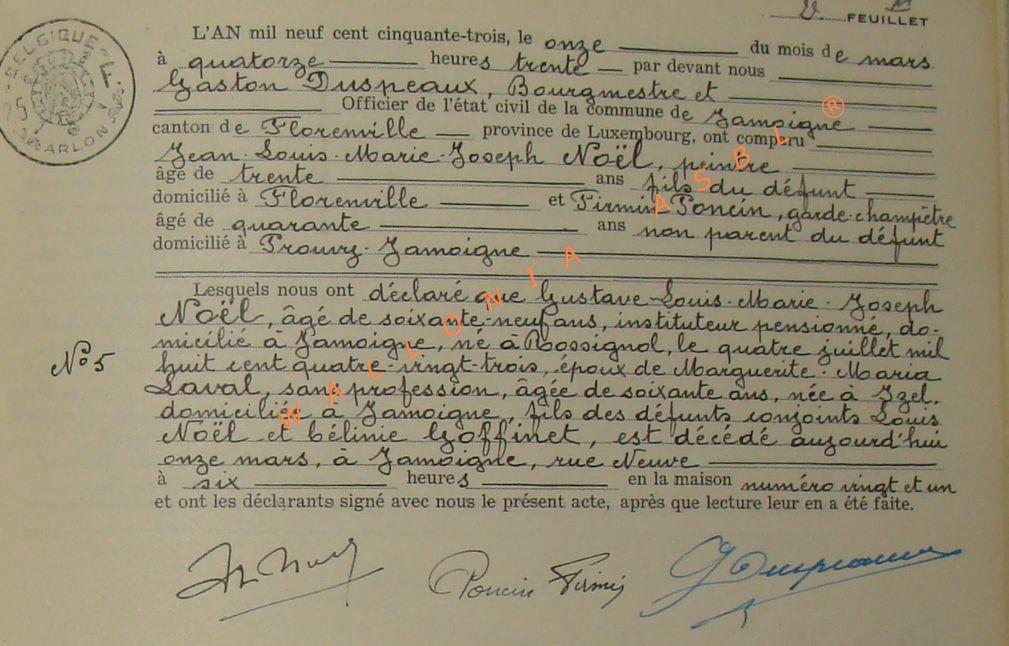 V. FEUILLET
BELGIQUE
ARLON
L'AN mil neuf cent cinquante-trois, le onze du mois de mars
à quatorze heures trente par devant nous
Gaston Duspeaux, Bourgmestre et
Officier de l'état civil de la commune de Jamoigne
canton de Florenville province de Luxembourg, ont comparu
Jean-Louis-Marie-Joseph Noël, peintre
âgé de trente ans fils du défunt
domicilié à Florenville et Firmin Poncin, garde-champêtre
âgé de quarante ans non parent du défunt
domicilié à Prouvy-Jamoigne
Lesquels nous ont déclaré que Gustave-Louis-Marie-Joseph
Noël, âgé de soixante-neuf ans, instituteur pensionné, do-
micilié à Jamoigne, né à Rossignol, le quatre juillet mil
huit cent quatre-vingt-trois, époux de Marguerite-Maria
Laval, sans profession, âgée de soixante ans, née à Izel,
domiciliée à Jamoigne, fils des défunts conjoints Louis
Noël et Célinie Goffinet, est décédé aujourd'hui
N°5
onze mars, à Jamoigne, rue Neuve
à six heures en la maison numéro vingt et un
et ont les déclarants signé avec nous le présent acte, après que lecture leur en a été faite.
Poncin Firmin
G Duspeaux
WALLONIA ASBL ®